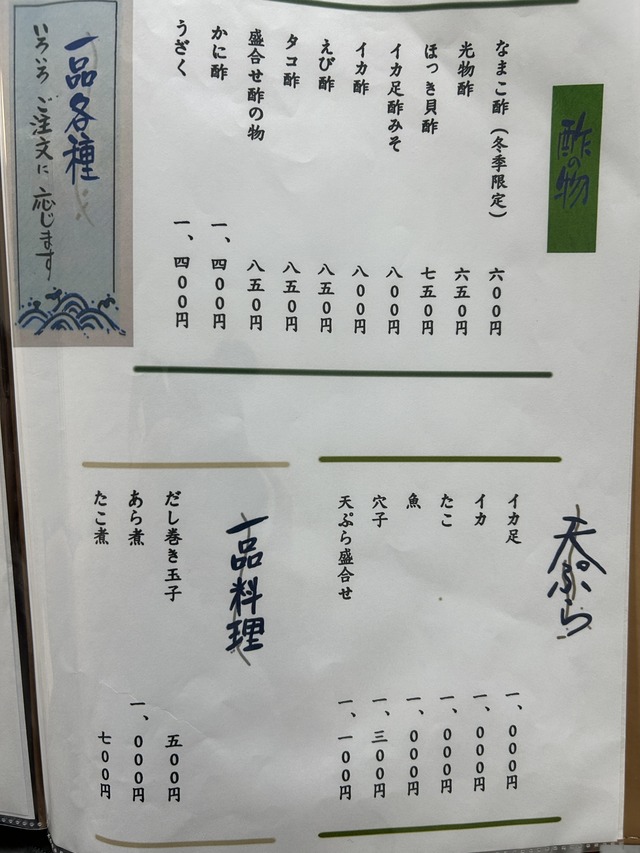 酢の物
なまこ酢（冬季限定） 六〇〇円
光物酢 六五〇円
ほっき貝酢 七五〇円
イカ足酢みそ 八〇〇円
イカ酢 八〇〇円
えび酢 八五〇円
タコ酢 八五〇円
盛合せ酢の物 八五〇円
かに酢 一、四〇〇円
うざく 一、四〇〇円
一品各種
いろいろ ご注文に 応じます
天ぷら
イカ足 一、〇〇〇円
イカ 一、〇〇〇円
たこ 一、〇〇〇円
魚 一、〇〇〇円
穴子 一、三〇〇円
天ぷら盛合せ 一、一〇〇円
一品料理
だし巻き玉子 五〇〇円
あら煮 一、〇〇〇円
たこ煮 七〇〇円